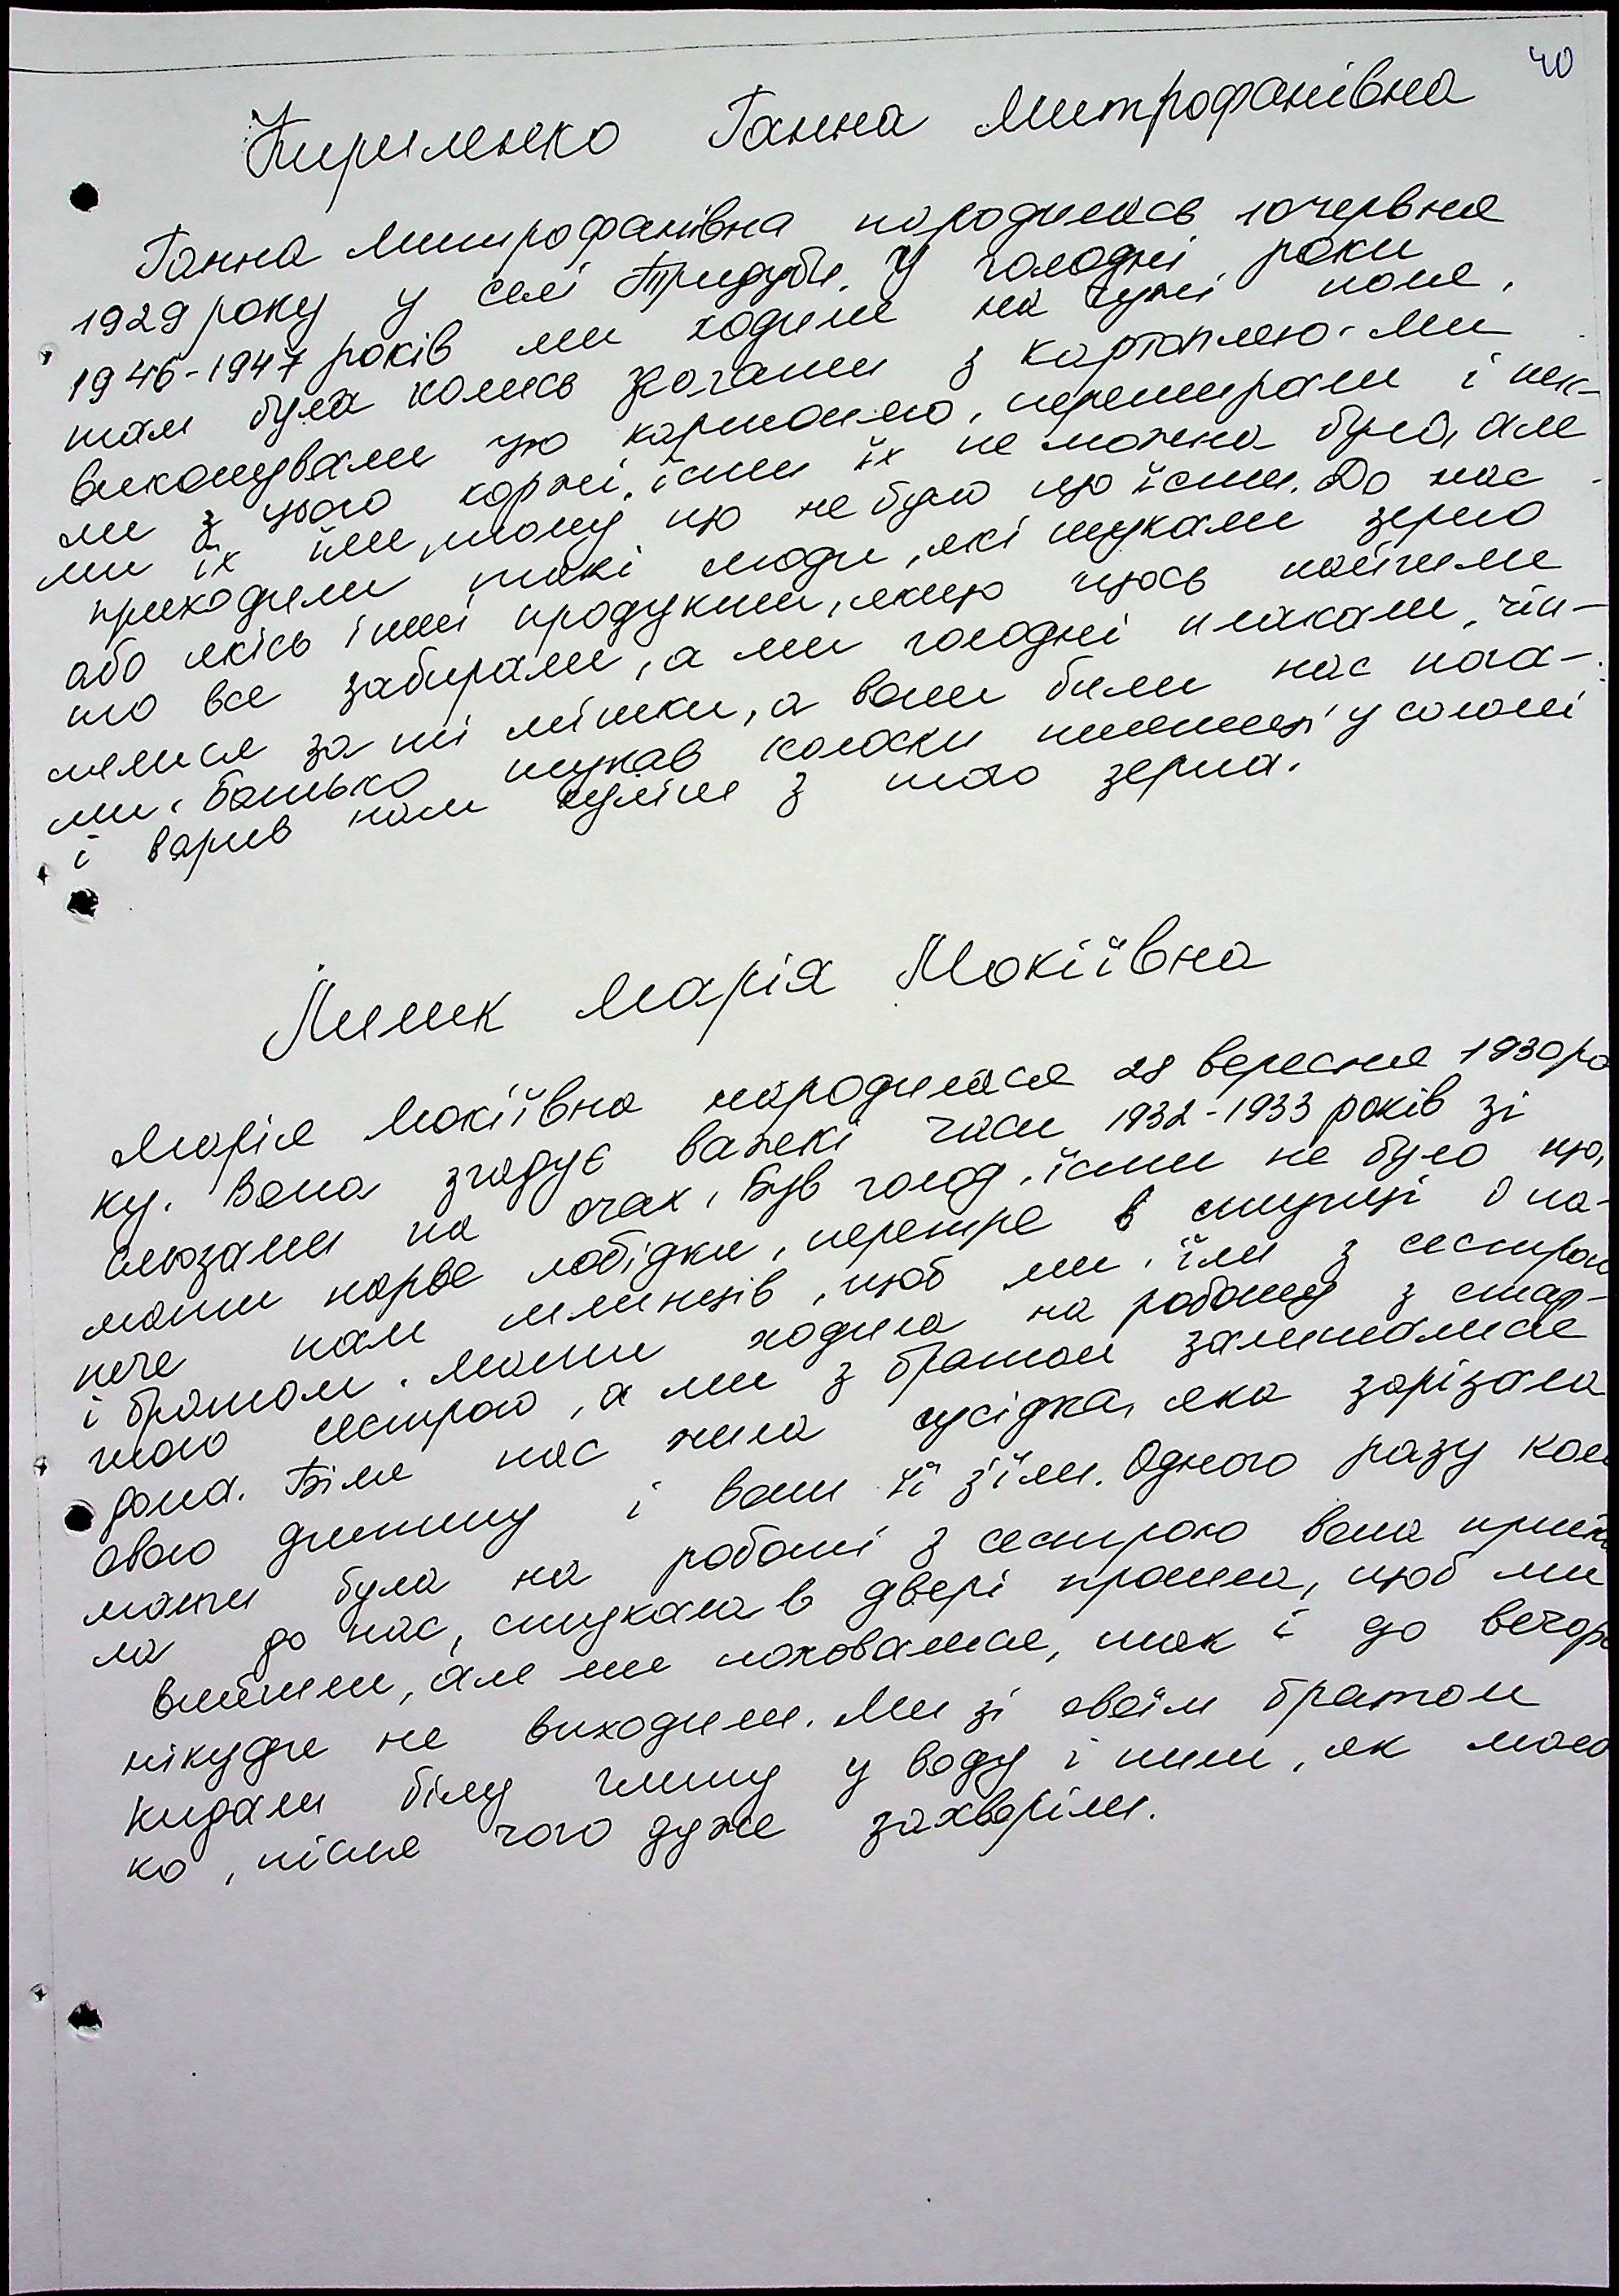 40
Кириленко Ганна Митрофанівна
Ганна Митрофанівна народилась 10 червня
1929 року у селі Тридуби. У голодні роки
1946-1947 років ми ходили на чужі поля,
там була колись з картоплею. Ми
викопували цю картоплю, перетирали і пек-
ли з цього коржі, їсти їх не можна було, але
ми їх їли, тому що не було що їсти. До нас
приходили такі люди, які шукали зерно
або якісь інші продукти, якщо щось найшли
то все забирали, а ми голодні плакали, чіп-
лялися за ті мішки, а вони били нас нога-
ми. Батько шукав колоски пшениці у соломі
і варив нам куліш з того зерна.
Марія Мокіївна
Марія Мокіївна народилася 28 вересня 1930 ро
ку. Вона згадує важкі часи 1932-1933 років зі
сльозами на очах. Був голод, їсти не було що,
мати нарве лобідки, перетре в ступці і на-
пече нам млинців, щоб ми їли з сестрою
і братом. Мати ходила на роботу з стар-
шою сестрою, а ми з братом залишалися
дома. Біля нас жила сусідка, яка зарізала
свою дитину і вони її з'їли. Одного разу коли
мати була на роботі з сестрою вона прийш
ла до нас, стукала в двері просила, щоб ми
вийшли, але ми поховалися, так і до вечора
нікуди не виходили. Ми зі своїм братом
кидали білу глину у воду і пили, як моло
ко, після чого дуже захворіли.